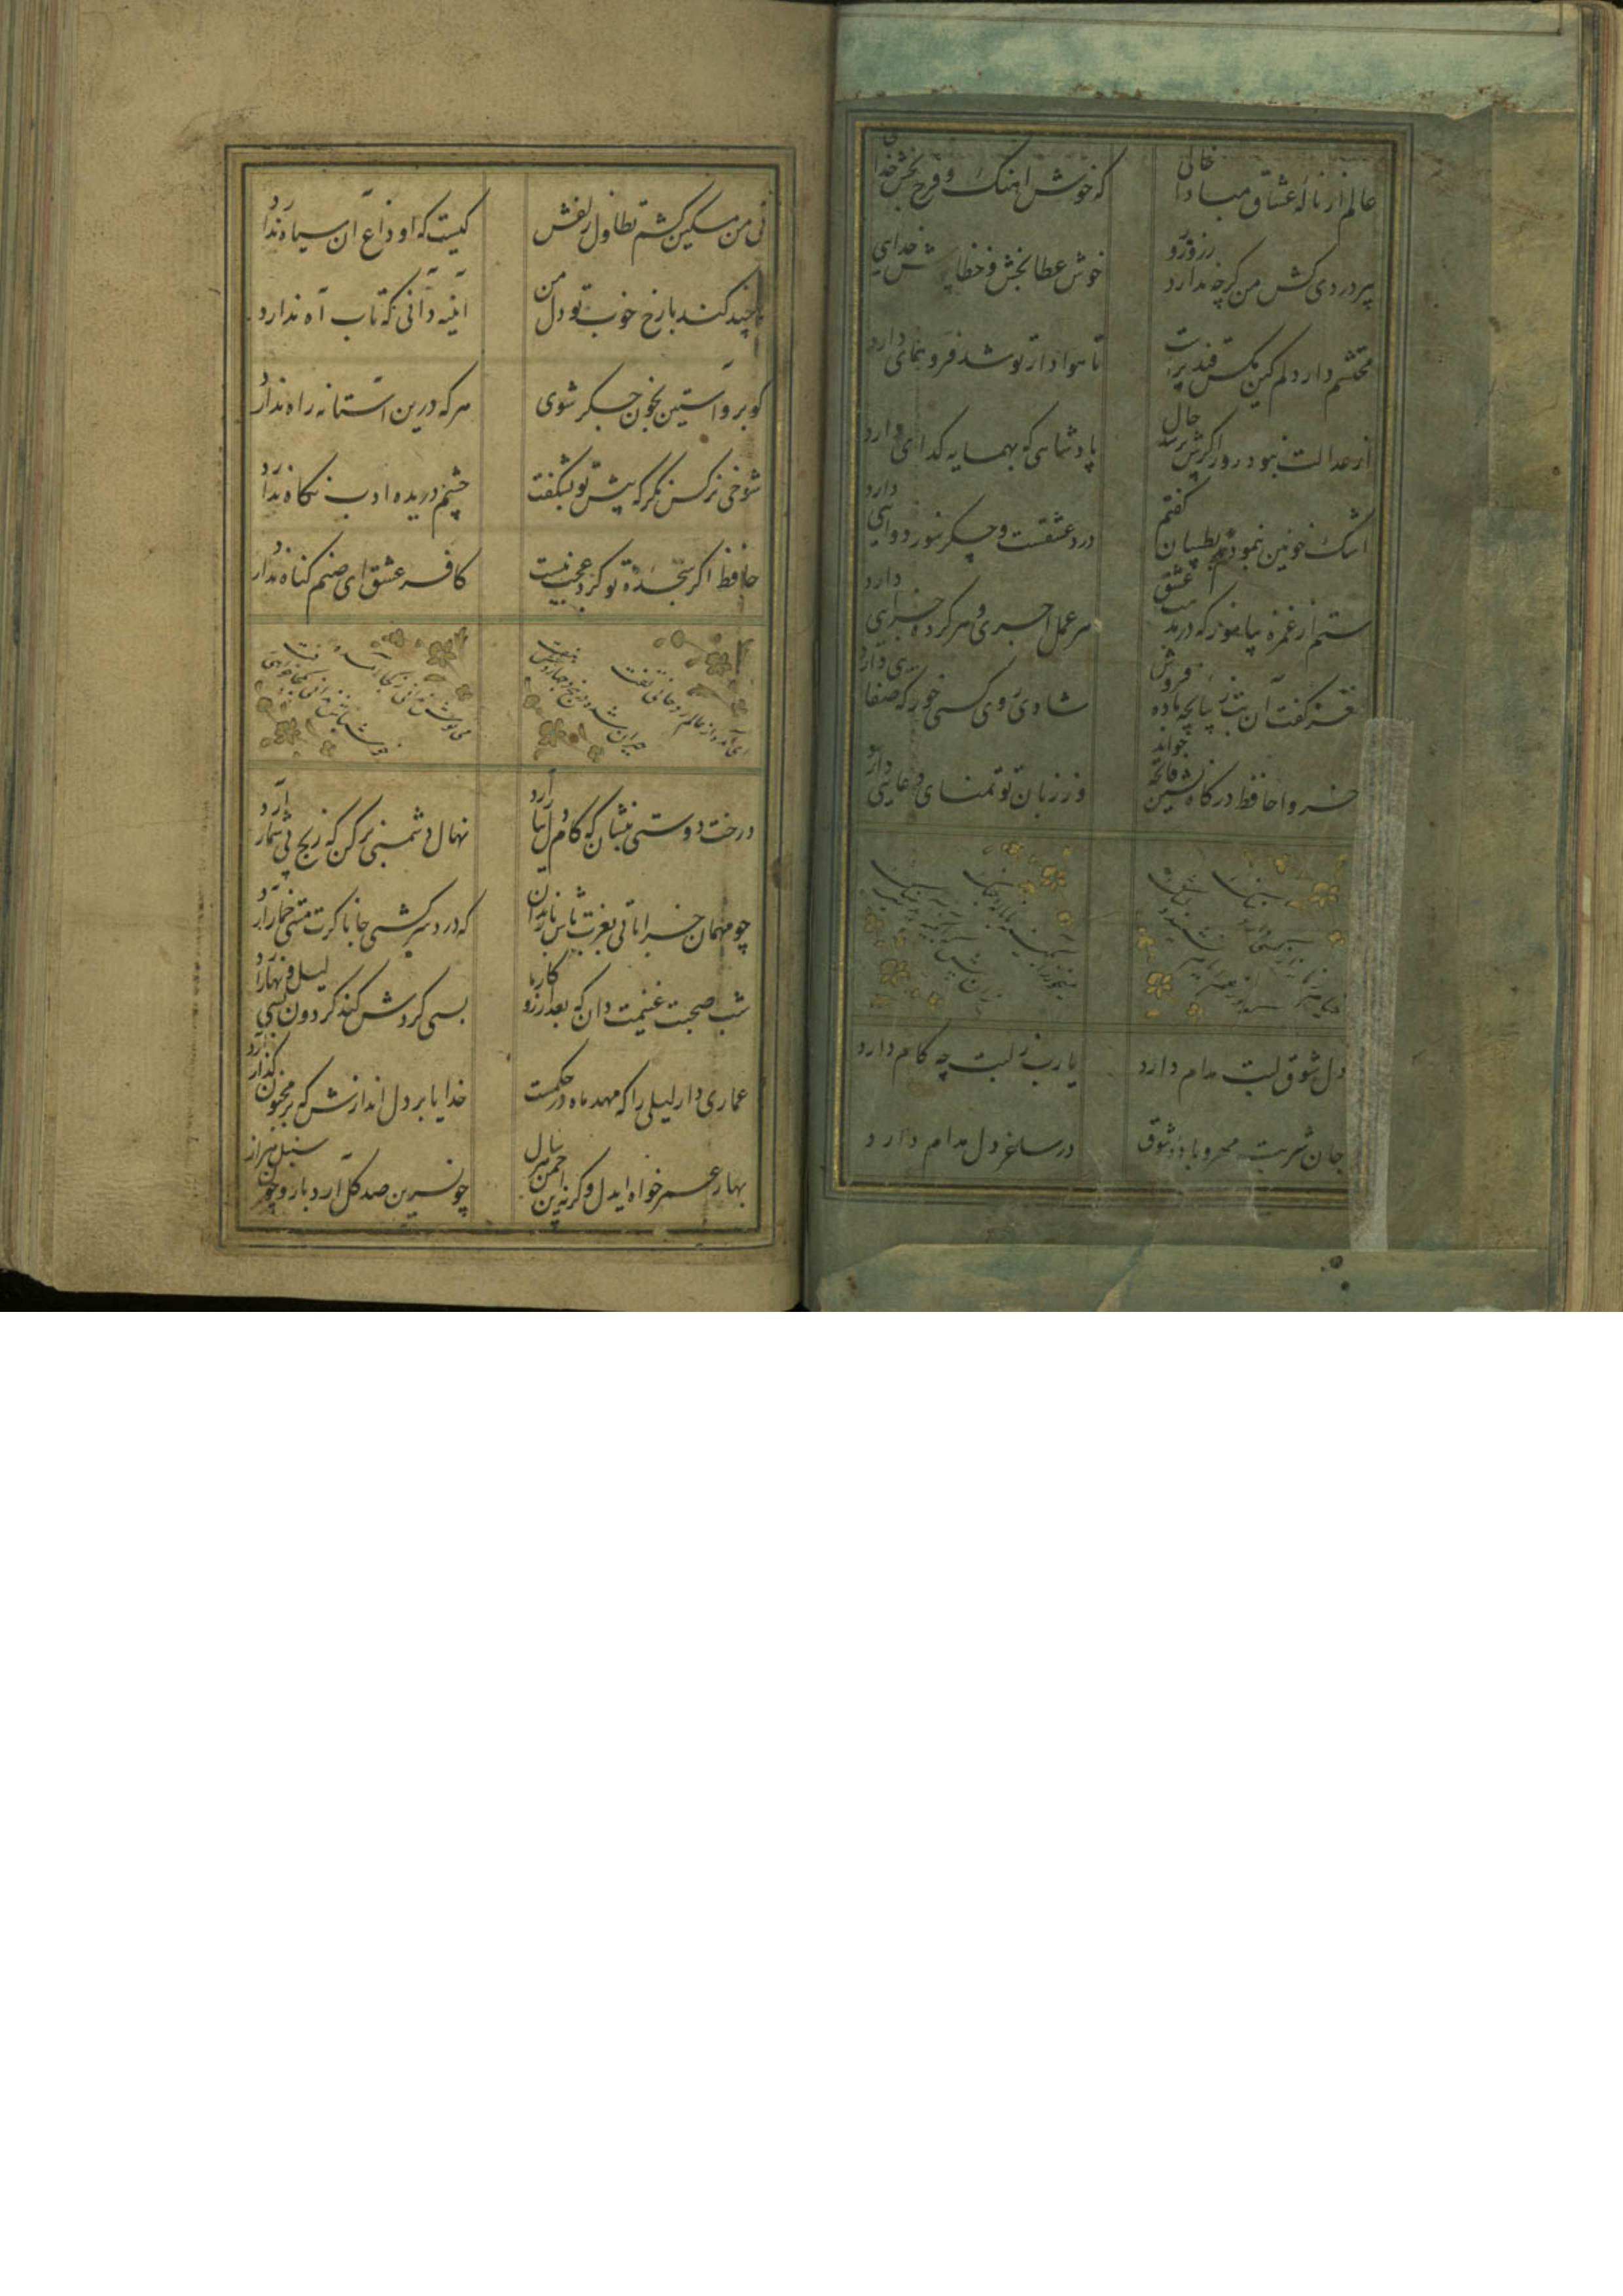 عالم از ناله عشاق مبادا خالی
که خوش آهنگ و فرح بخش
پیر دردی کش من گرچه ندارد زر و زور
خوش عطا بخش و خطا پوش خدایی
محتشم دار دلم کین مگس قند پرست
تا هوادار تو شد فر و همای دارد
از عدالت نبود دور اگرش پرسد حال
پادشاهی که بهمسایه گدای دارد
اشک خونین بنمودم بطبیبان گفتم
درد عشقست و جگر سوز دوایی دارد
ستم از غمزه میاموز که در مذهب عشق
هر عمل اجری و هر کرده جزایی دارد
نغز گفت آن بت ترسا بچه باده فروش
شادی روی کسی خور که صفای دارد
خسروا حافظ درگاه نشین فاتحه خواند
وز زبان تو تمنای دعایی دارد
دل شوق لبت مدام دارد
یارب ز لبت چه کام دارد
جان شربت مهر و باده شوق
در ساغر دل مدام دارد
نی من مسکین کشم تطاول زلفش
کیست که او داغ آن سیاه ندارد
چند کند با رخ خوب تو دل من
آینه دانی که تاب آه ندارد
گو برو آستین بخون جگر شوی
هر که درین آستانه راه ندارد
شوخی نرگس نگر که پیش تو بشکفت
چشم دریده ادب نگاه ندارد
حافظ اگر سجده تو کرد عجب نیست
کافر عشق ای صنم گناه ندارد
ای آمده از عالم روحانی تفت
حیران شده در پنج و چهار و شش و هفت
می نوش ندانی ز کجا آمده
خوش باش ندانی بکجا خواهی رفت
درخت دوستی بنشان که کام دل ببار آرد
نهال دشمنی برکن که رنج بی شمار آرد
چو مهمان خراباتی بعزت باش با رندان
که درد سر کشی جانا گرت مستی خمار آرد
شب صحبت غنیمت دان که بعد از روزگار ما
بسی گردش کند گردون بسی لیل و نهار آرد
عماری دار لیلی را که مهد ماه در حکمست
خدایا بر دل اندازش که بر مجنون گذار آرد
بهار عمر خواه ایدل وگرنه این چمن هر سال
چو نسرین صد گل آرد بار و چون سنبل هزار